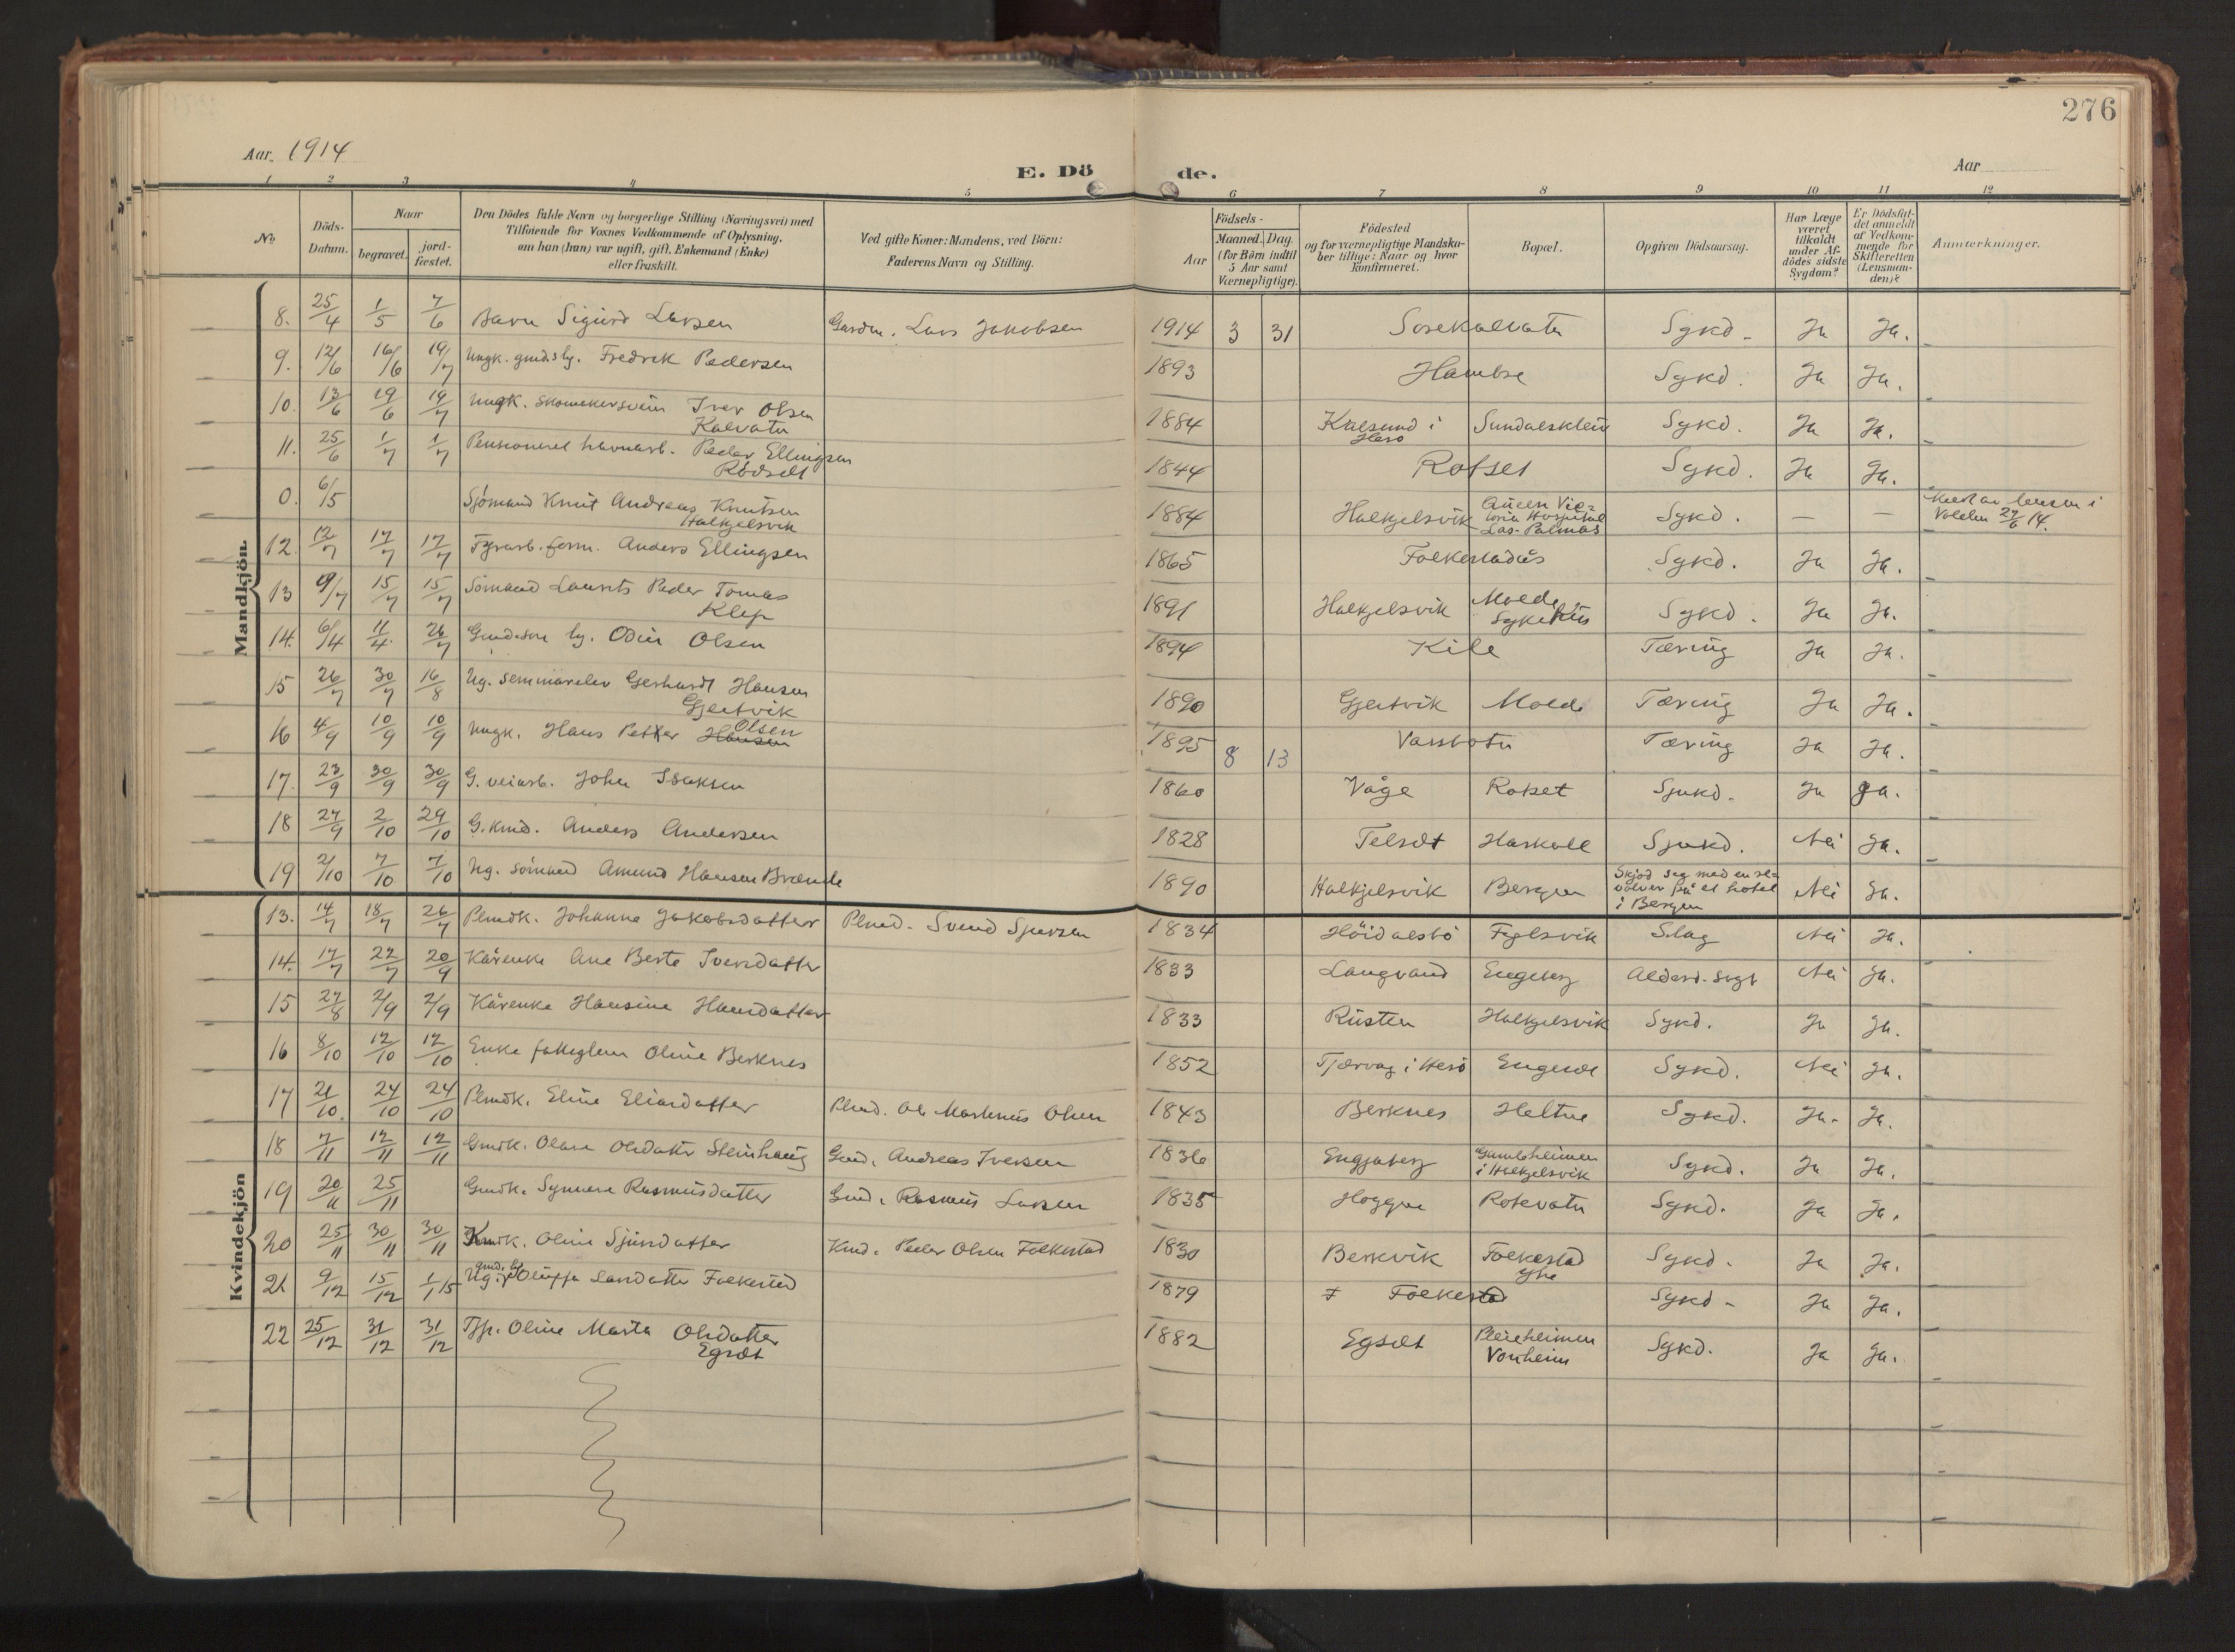 276
Aar. 1914
E. Dö de.
Aar
1 2 3 4 5 6 7 8 9 10 11 12
No.
Döds-Datum.
Naar
begravet.
jord-fæstet.
Den Dödes fulde Navn og borgerlige Stilling (Næringsvei) med
Tilföiende for Voxnes Vedkommende af Oplysning,
om han (hun) var ugift, gift, Enkemand (Enke)
eller fraskilt.
Ved gifte Koner: Mandens, ved Börn:
Faderens Navn og Stilling.
Födsels-
Aar
Maaned. Dag.
(for Börn indtil
5 Aar samt
Værnepligtige).
Födested
og for værnepligtige Mandska-
ber tillige: Naar og hvor
konfirmeret.
Bopæl.
Opgiven Dödsaarsag.
Har Læge
været
tilkaldt
under Af-
dödes sidste
Sygdom?
Er Dödsfal-
det anmeldt
af Vedkom-
mende for
Skifteretten
(Lensman-
den)?
Anmærkninger.
Mandkjön.
8. 25/4 1/5 7/6 Barn Sigurd Larsen Gardm. Lars Jakobsen 1914 3 31 Sorekalvatn Sykd. Ja Ja.
9. 12/6 16/6 19/7 Ungk. gmd.s by. Fredrik Pedersen 1893 Hambre Sykd. Ja Ja.
10. 13/6 19/6 19/7 Ungk. skomakersvein Iver Olsen
Kalvatn 1884 Kalsund i
Herö Sundalsklein Sykd. Ja Ja.
11. 25/6 1/7 1/7 Pensioneret havnarb. Peder Ellingsen
Rödset 1844 Rotset Sykd. Ja Ja.
0. 6/5 Sjömand Knut Andreas Knutsen
Halkjelsvik 1884 Halkjelsvik Queen Vic-
toria Hospital
Las-Palmas Sykd. — — Meld av lensm i
Volden 27/6 14.
12. 12/7 17/7 17/7 Fyrarb. form. Anders Ellingsen 1865 Folkestadås Sykd. Ja Ja.
13 9/7 15/7 15/7 Sömand Laurits Peder Tomas
Klep 1891 Halkjelsvik Molde
Sykehus Sykd. Ja Ja.
14. 6/4 11/4 26/7 Gmd.sön by. Odin Olsen 1894 Kile Tæring Ja Ja.
15 26/7 30/7 16/8 Ug. seminarelev Gerhardt Hansen
Gjertvik 1890 Gjertvik Molde Tæring Ja Ja.
16 4/9 10/9 10/9 Ungk. Hans Petter Hansen Olsen 1895 8 13 Vassbotn Tæring Ja Ja.
17. 23/9 30/9 30/9 G. veiarb. John Isaksen 1860 Våge Rotset Sjukd. Ja Ja.
18 27/9 2/10 29/10 G. kmd. Anders Andersen 1828 Velsdt Haskoll Sjukd. Nei Ja.
19 2/10 7/10 7/10 Ug. sömand Amund Hansen Brænde 1890 Halkjelsvik Bergen Skjöd seg med en re-
volver på et hotel
i Bergen Nei Ja.
Kvindekjön
13. 14/7 18/7 26/7 Plmdk. Johanna Jakobsdatter Plmd. Svend Sjursen 1834 Höidalsbö Fyllsvik Slag Nei Ja.
14. 17/7 22/7 20/9 Kårenke Ane Berte Iversdatter 1833 Langvand Engeberg Aldersd. svgt Nei Ja.
15 27/8 2/9 2/9 Kårenke Hansine Hansdatter 1833 Rusten Halkjelsvik Sykd. Ja Ja.
16 8/10 12/10 12/10 Enke fattiglem Oline Berknes 1852 Tjærvag i Herö Engeset Sykd. Nei Ja.
17 21/10. 24/10 24/10 Plmdk. Eline Eliasdatter Plmd. Ole Martinus Olsen 1843 Berknes Heltne Sykd. Ja. Ja.
18 7/11 12/11 12/11 Gmdk. Olava Olsdatter Steinhaug Gmd. Andreas Iversen 1836 Engjaberg Gamleheimen
i Halkjelsvik Sykd. Ja Ja.
19 20/11 25/11 Gmdk. Synnere Rasmusdatter Gmd. Rasmus Larsen 1835 Hoggen Rotevatn Sykd. Ja Ja.
20 25/11 30/11 30/11 Kmdk. Oline Sjursdatter Kmd. Peder Olsen Folkestad 1830 Berkvik Folkestad
ytre Sykd. Ja Ja.
21 9/12 15/12 1/1 15 Ug. gmd. by Oluffa Larsdatter Folkestad 1879 Folkestad Sykd. Ja Ja.
22 25/12 31/12 31/12 Tjp. Oline Marta Olsdatter
Egset 1882 Egset Pleieheimen
Vonheim Sykd. Ja Ja.